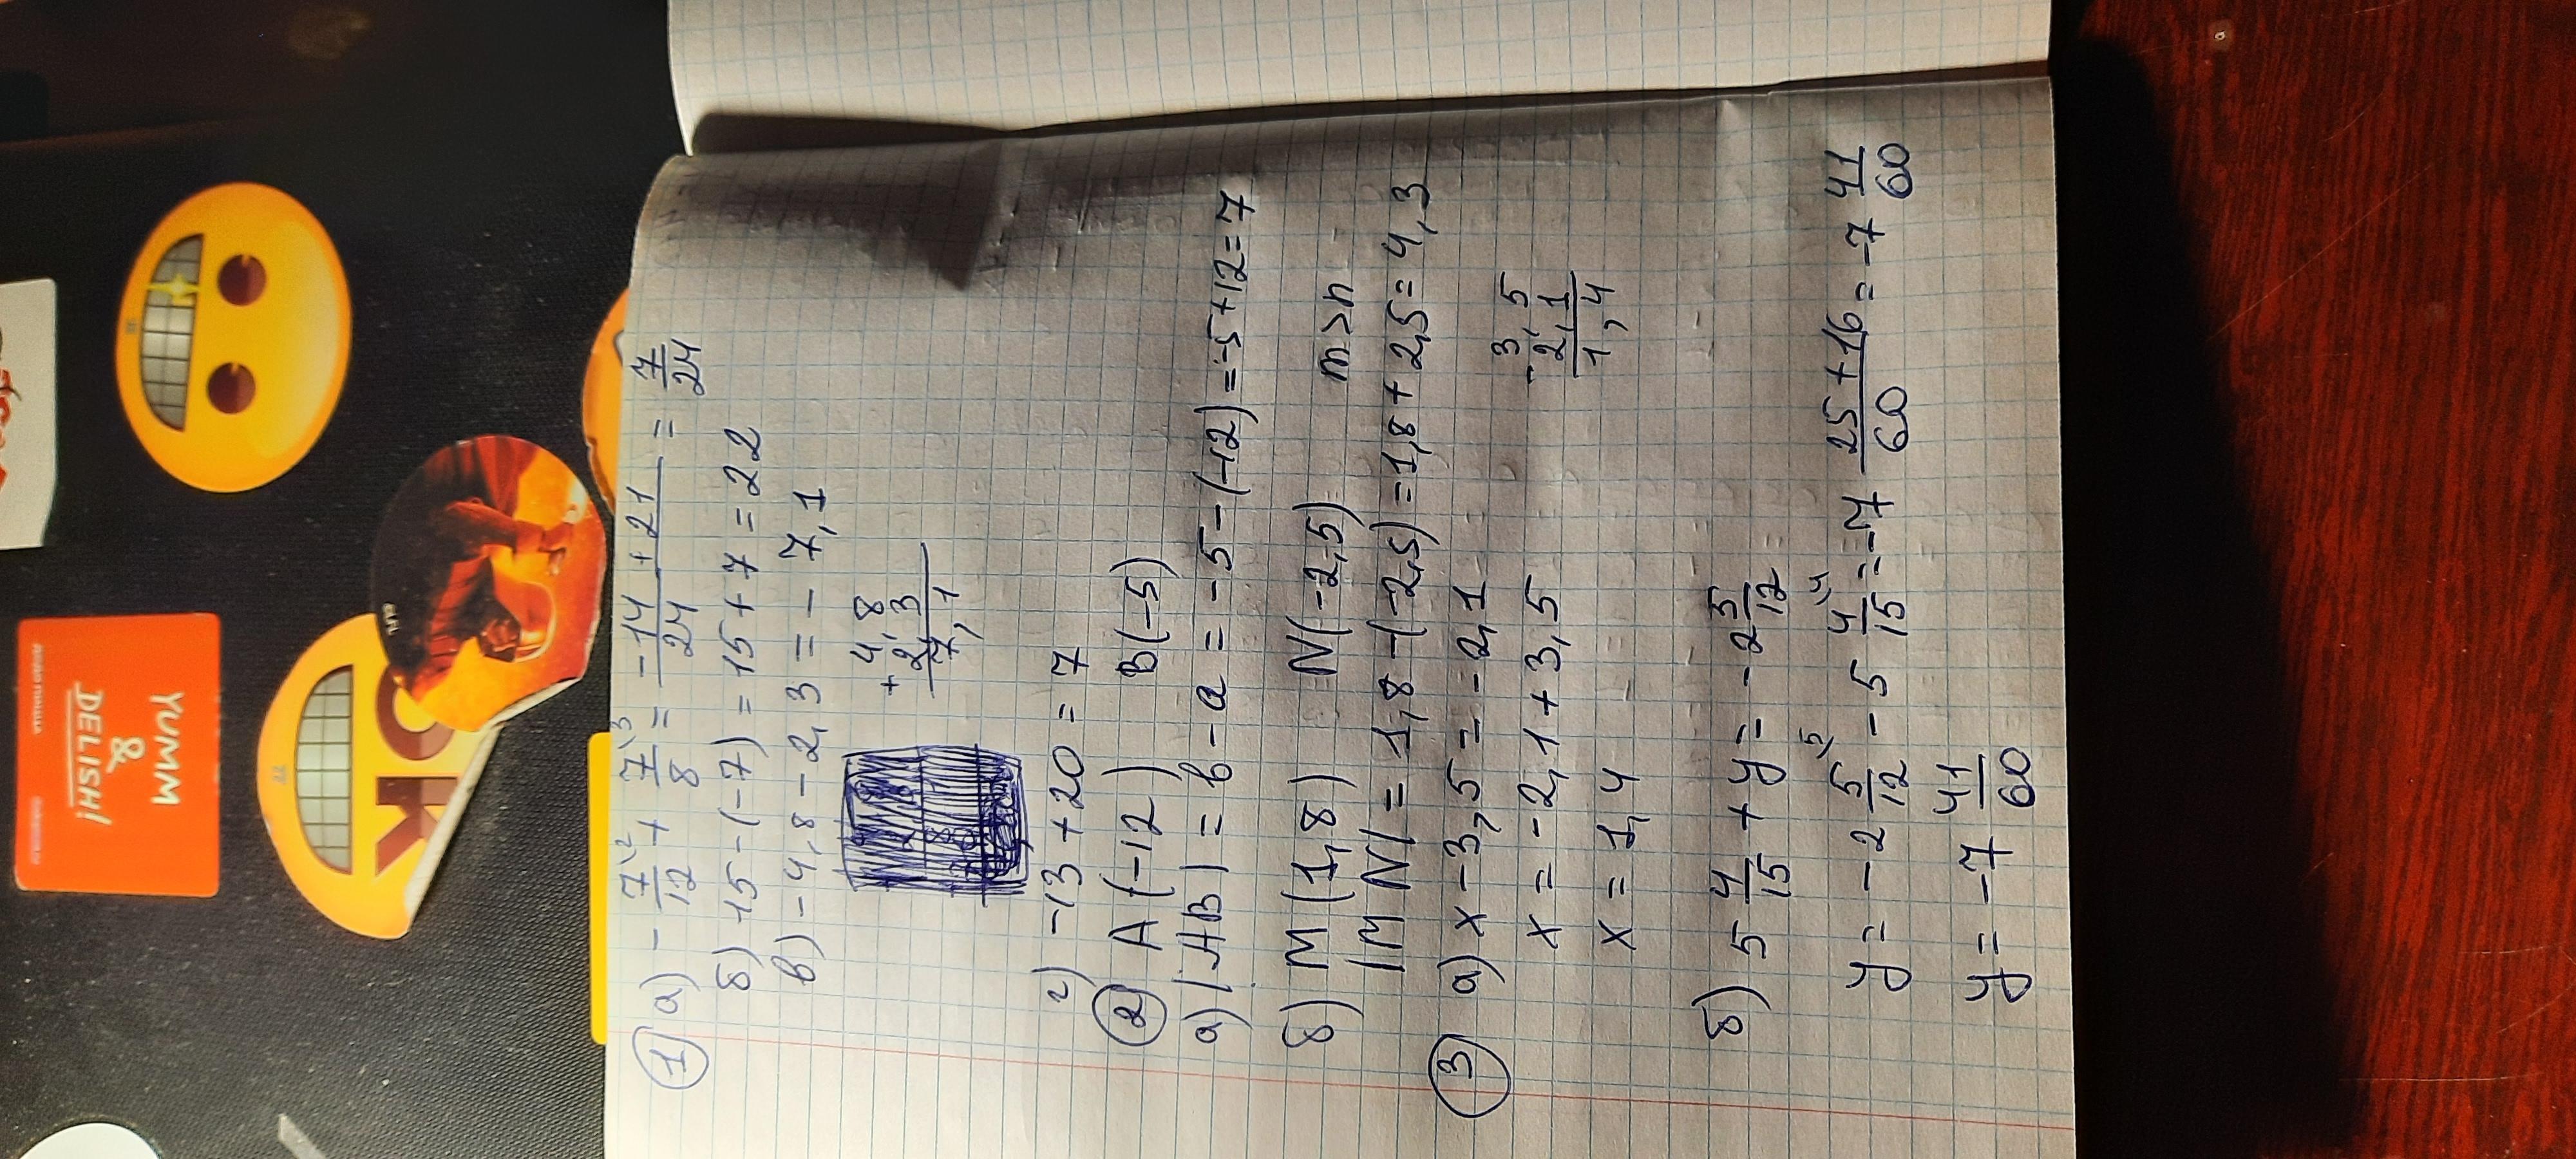 YUMM
&
DELISH!
OK
1) а) - 7\2/12 + 7\3/8 = -14 + 21/24 = 7/24
б) 15 - (-7) = 15 + 7 = 22
в) -4,8 - 2,3 = -7,1
+ 4,8
2,3
7,1
г) -13 + 20 = 7
2) A(-12) B(-5)
а) |AB| = в - а = -5 - (-12) = -5 + 12 = 7
б) M(1,8) N(-2,5) m > n
|MN| = 1,8 - (-2,5) = 1,8 + 2,5 = 4,3
3) а) x - 3,5 = -2,1
x = -2,1 + 3,5
- 3,5
2,1
1,4
x = 1,4
б) 5 4/15 + y = -2 5/12
y = -2 5\5/12 - 5 4\4/15 = -7 25 + 16/60 = -7 41/60
y = -7 41/60